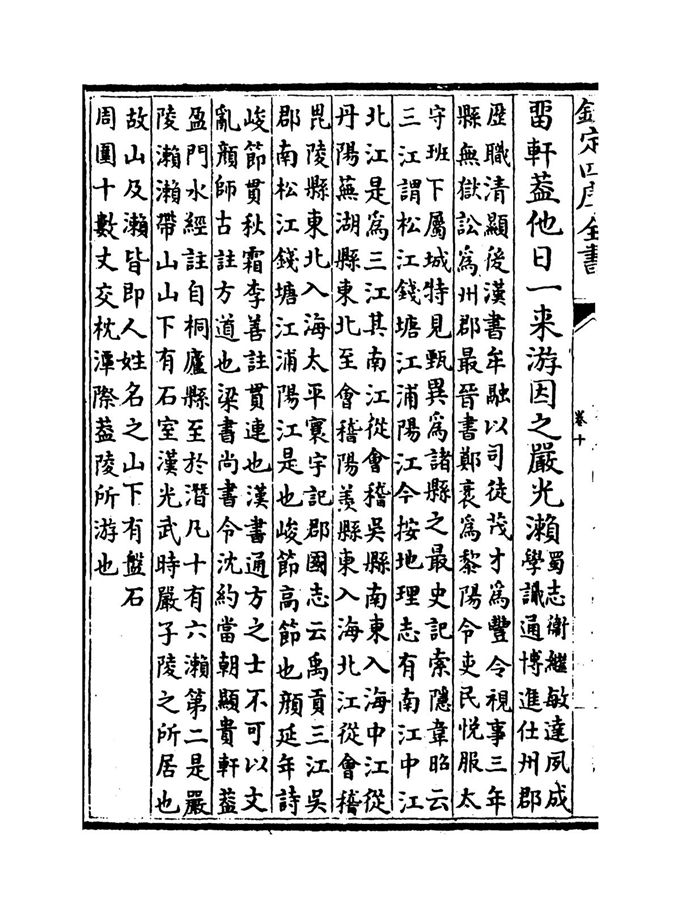 欽定四庫全書
卷十
畱軒葢他日一来游因之嚴光瀨
蜀志衞繼敏達夙成
學識通博進仕州郡
歴職清顯後漢書牟融以司徒茂才為豐令視事三年
縣無獄訟為州郡最晉書鄭袤為黎陽令吏民悦服太
守班下屬城特見甄異為諸縣之最史記索隱韋昭云
三江謂松江錢塘江浦陽江今按地理志有南江中江
北江是為三江其南江從會稽吳縣南東入海中江從
丹陽蕪湖縣東北至會稽陽羨縣東入海北江從會稽
毘陵縣東北入海太平寰宇記郡國志云禹貢三江吳
郡南松江錢塘江浦陽江是也峻節高節也顔延年詩
峻節貫秋霜李善註貫連也漢書通方之士不可以文
亂顔師古註方道也梁書尚書令沈約當朝顯貴軒葢
盈門水經註自桐廬縣至於潛凡十有六瀨第二是嚴
陵瀨瀨帶山山下有石室漢光武時嚴子陵之所居也
故山及瀨皆即人姓名之山下有盤石
周圍十數丈交枕潭際葢陵所游也